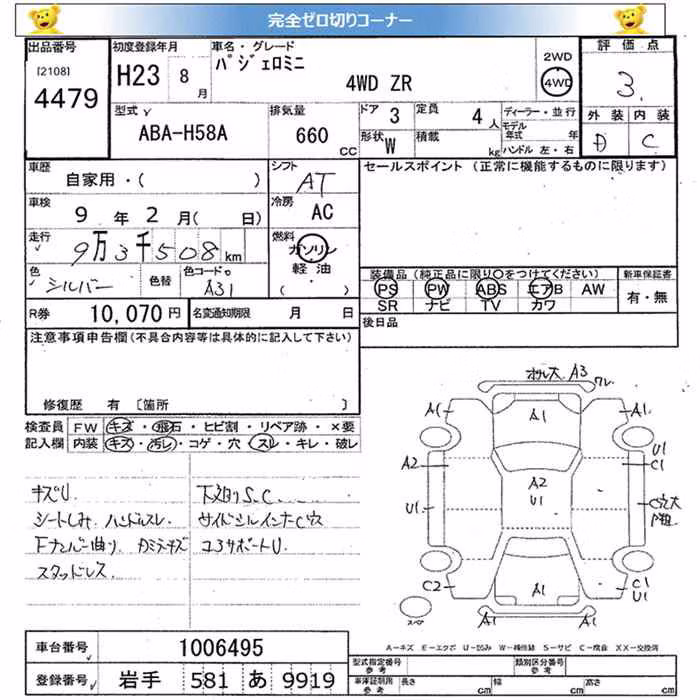 完全ゼロ切りコーナー
出品番号 初度登録年月 車名・グレード 評価点
[2108] パジェロミニ 2WD
4479 H23 8月 4WD ZR 4WD 3.
外装 内装
型式 排気量 ドア 3 定員 4人 ディーラー・並行
ABA-H58A 660CC 形状 W 積載 kg モデル年式 年 D C
ハンドル 左・右
車歴 シフト セールスポイント (正常に機能するものに限ります)
自家用・( ) AT
車検 冷房
9年2月( 日) AC
走行 燃料
9万3千508km ガソリン
色 色替 色コードNo 軽油 装備品(純正品に限り○をつけてください) 新車保証書
シルバー A31 ( ) PS PW ABS エアB AW 有・無
SR ナビ TV カワ
R券 10,070円 名変通知期限 月 日 後日品
注意事項申告欄(不具合内容等は具体的に記入して下さい)
修復歴 有 [箇所 ]
検査員 FW キズ・飛石・ヒビ割・リペア跡・×要
記入欄 内装 キズ・汚レ・コゲ・穴・スレ・キレ・破レ
キズU 下廻りS.C
シートしみ ハンドルスレ サイドシルインナーC穴
Fナンバー曲り コアサポートU
スタッドレス
A3
A1 A1 A1
U1
A2 C1
A2
U1
U1 C穴大
C2 A1 C1
U1
スペア A1 A1
A-キズ E-エクボ U-凹み W-補修跡 S-サビ C-腐食 XX-交換済
車台番号 1006495
型式指定番号 参考 類別区分番号 参考
登録番号 岩手 581 あ 9919
車庫証明用 参考 長さ cm 幅 cm 高さ cm